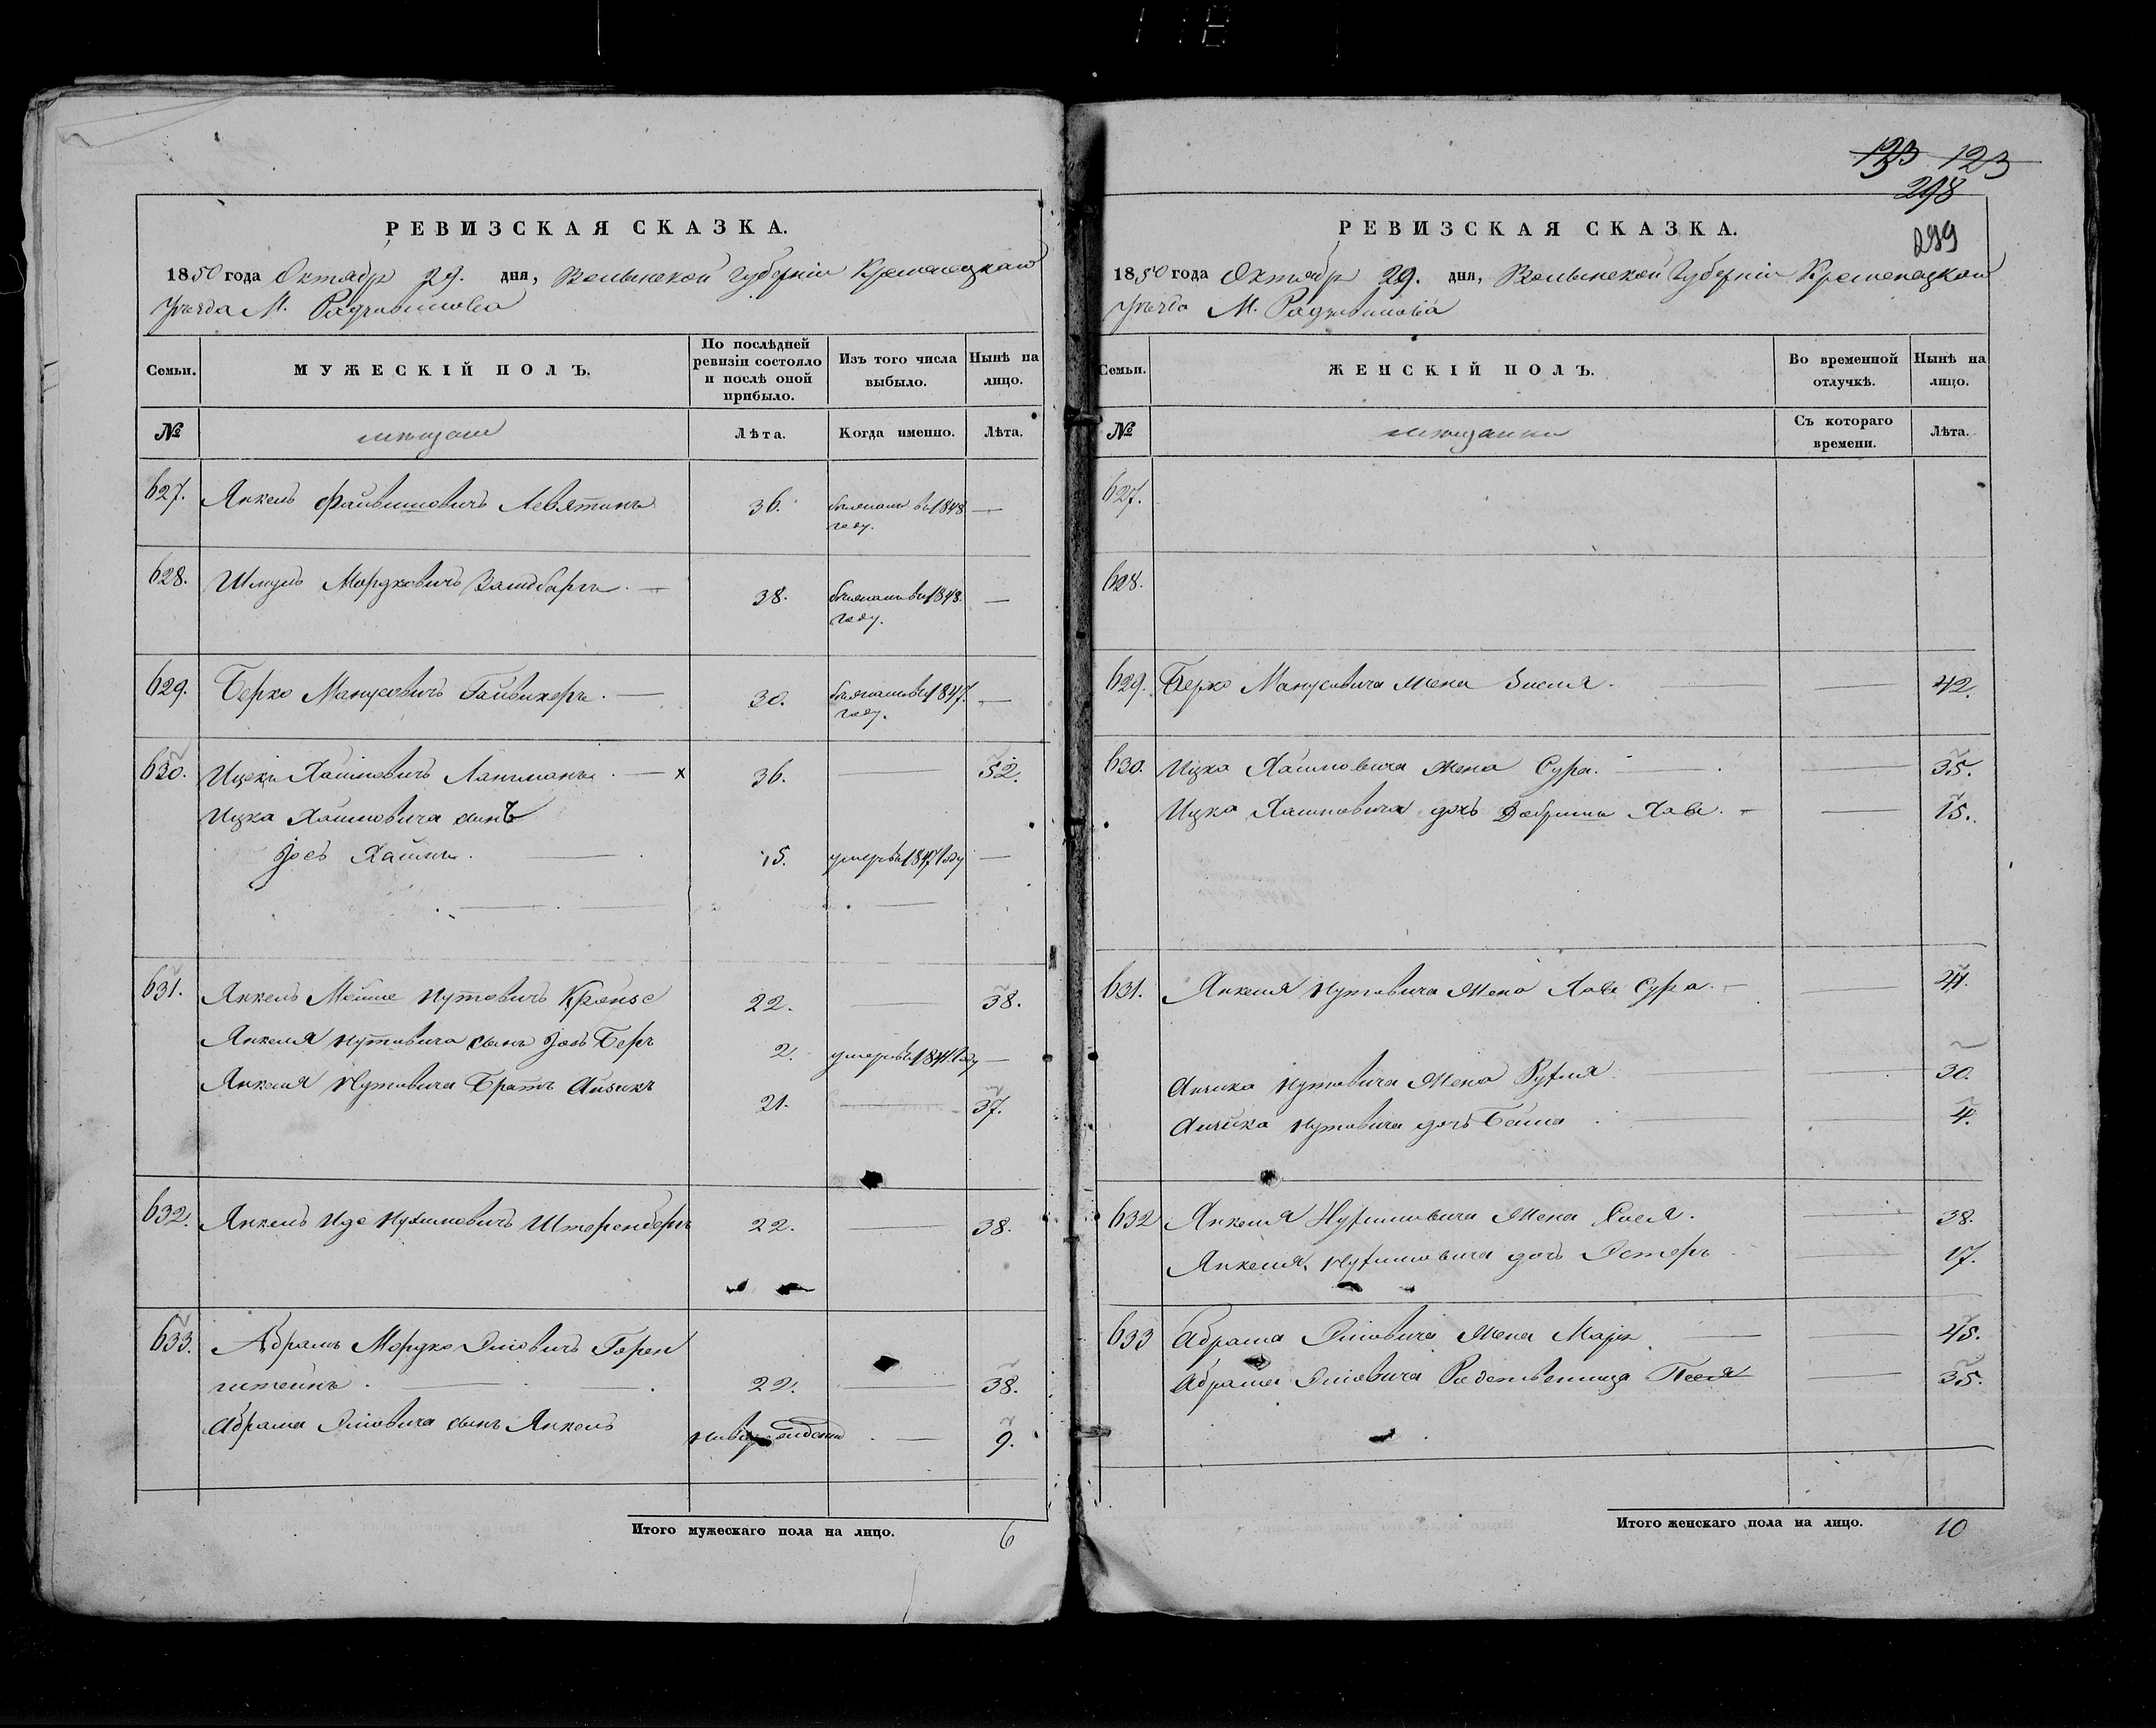 123 123
298
299
РЕВИЗСКАЯ СКАЗКА.
1850 года Октября 29. дня, Волынской Губерніи Кременецкаго
Уѣзда М. Радзивилова
Семьи.
МУЖЕСКІЙ ПОЛЪ.
По послѣдней ревизіи состояло и послѣ оной прибыло.
Изъ того числа выбыло.
Нынѣ на лицо.
№
мѣщане
Лѣта.
Когда именно.
Лѣта.
627. Янкель Файвишовичъ Левятинъ 36. въ 1848 году. —
628. Шмуль Мордковичъ 38. 1848. году. —
629. Берко Манусовичъ 30. 1847. году. —
630. Ицекъ Хаимовичъ — x 36. — 52.
Ицка Хаимовича сынъ
Іосъ Хаимъ. — 15. умеръ въ 1847 году —
631. Янкель Мойше Нутовичъ 22. — 38.
Янкеля Нутовича сынъ Іосъ Беръ 2. умеръ въ 1841 году —
Янкеля Нутовича Братъ Айзикъ 21. — 37.
632. Янкель Нухимовичъ Штеренберъ 22. — 38.
633. Абрамъ Мордко Горен
штейнъ. — 22. — 38.
Абрама сынъ Янкель — 9.
Итого мужескаго пола на лицо. 6
РЕВИЗСКАЯ СКАЗКА.
1850 года Октября 29. дня, Волынской Губерніи Кременецкаго
Уѣзда М. Радзивилова
Семьи.
ЖЕНСКІЙ ПОЛЪ.
Во временной отлучкѣ.
Нынѣ на лицо.
№
мѣщанки
Съ котораго времени.
Лѣта.
627.
628.
629. Берко Манусовича жена Зисля. — 42.
630. Ицка Хаимовича жена Сура. — 35.
Ицка Хаимовича дочь Добришъ Хава. — 15.
631. Янкеля Нутовича жена Хава Сура. — 41.
Айзика Нутовича жена Рухля — 30.
Айзика Нутовича дочь Бейла — 4.
632 Янкеля Нухимовича жена — 38.
Янкеля Нухимовича дочь Эстеръ — 17.
633 Абрама жена — 45.
Абрама Родственница Песя — 35.
Итого женскаго пола на лицо. 10